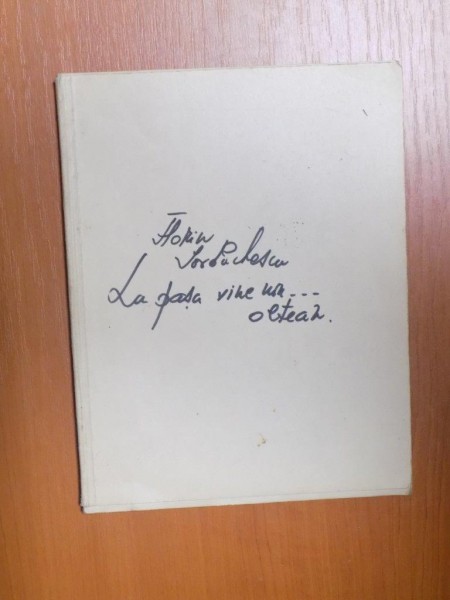 Florin
Iordăchescu
La pașa vine un...
oltean.